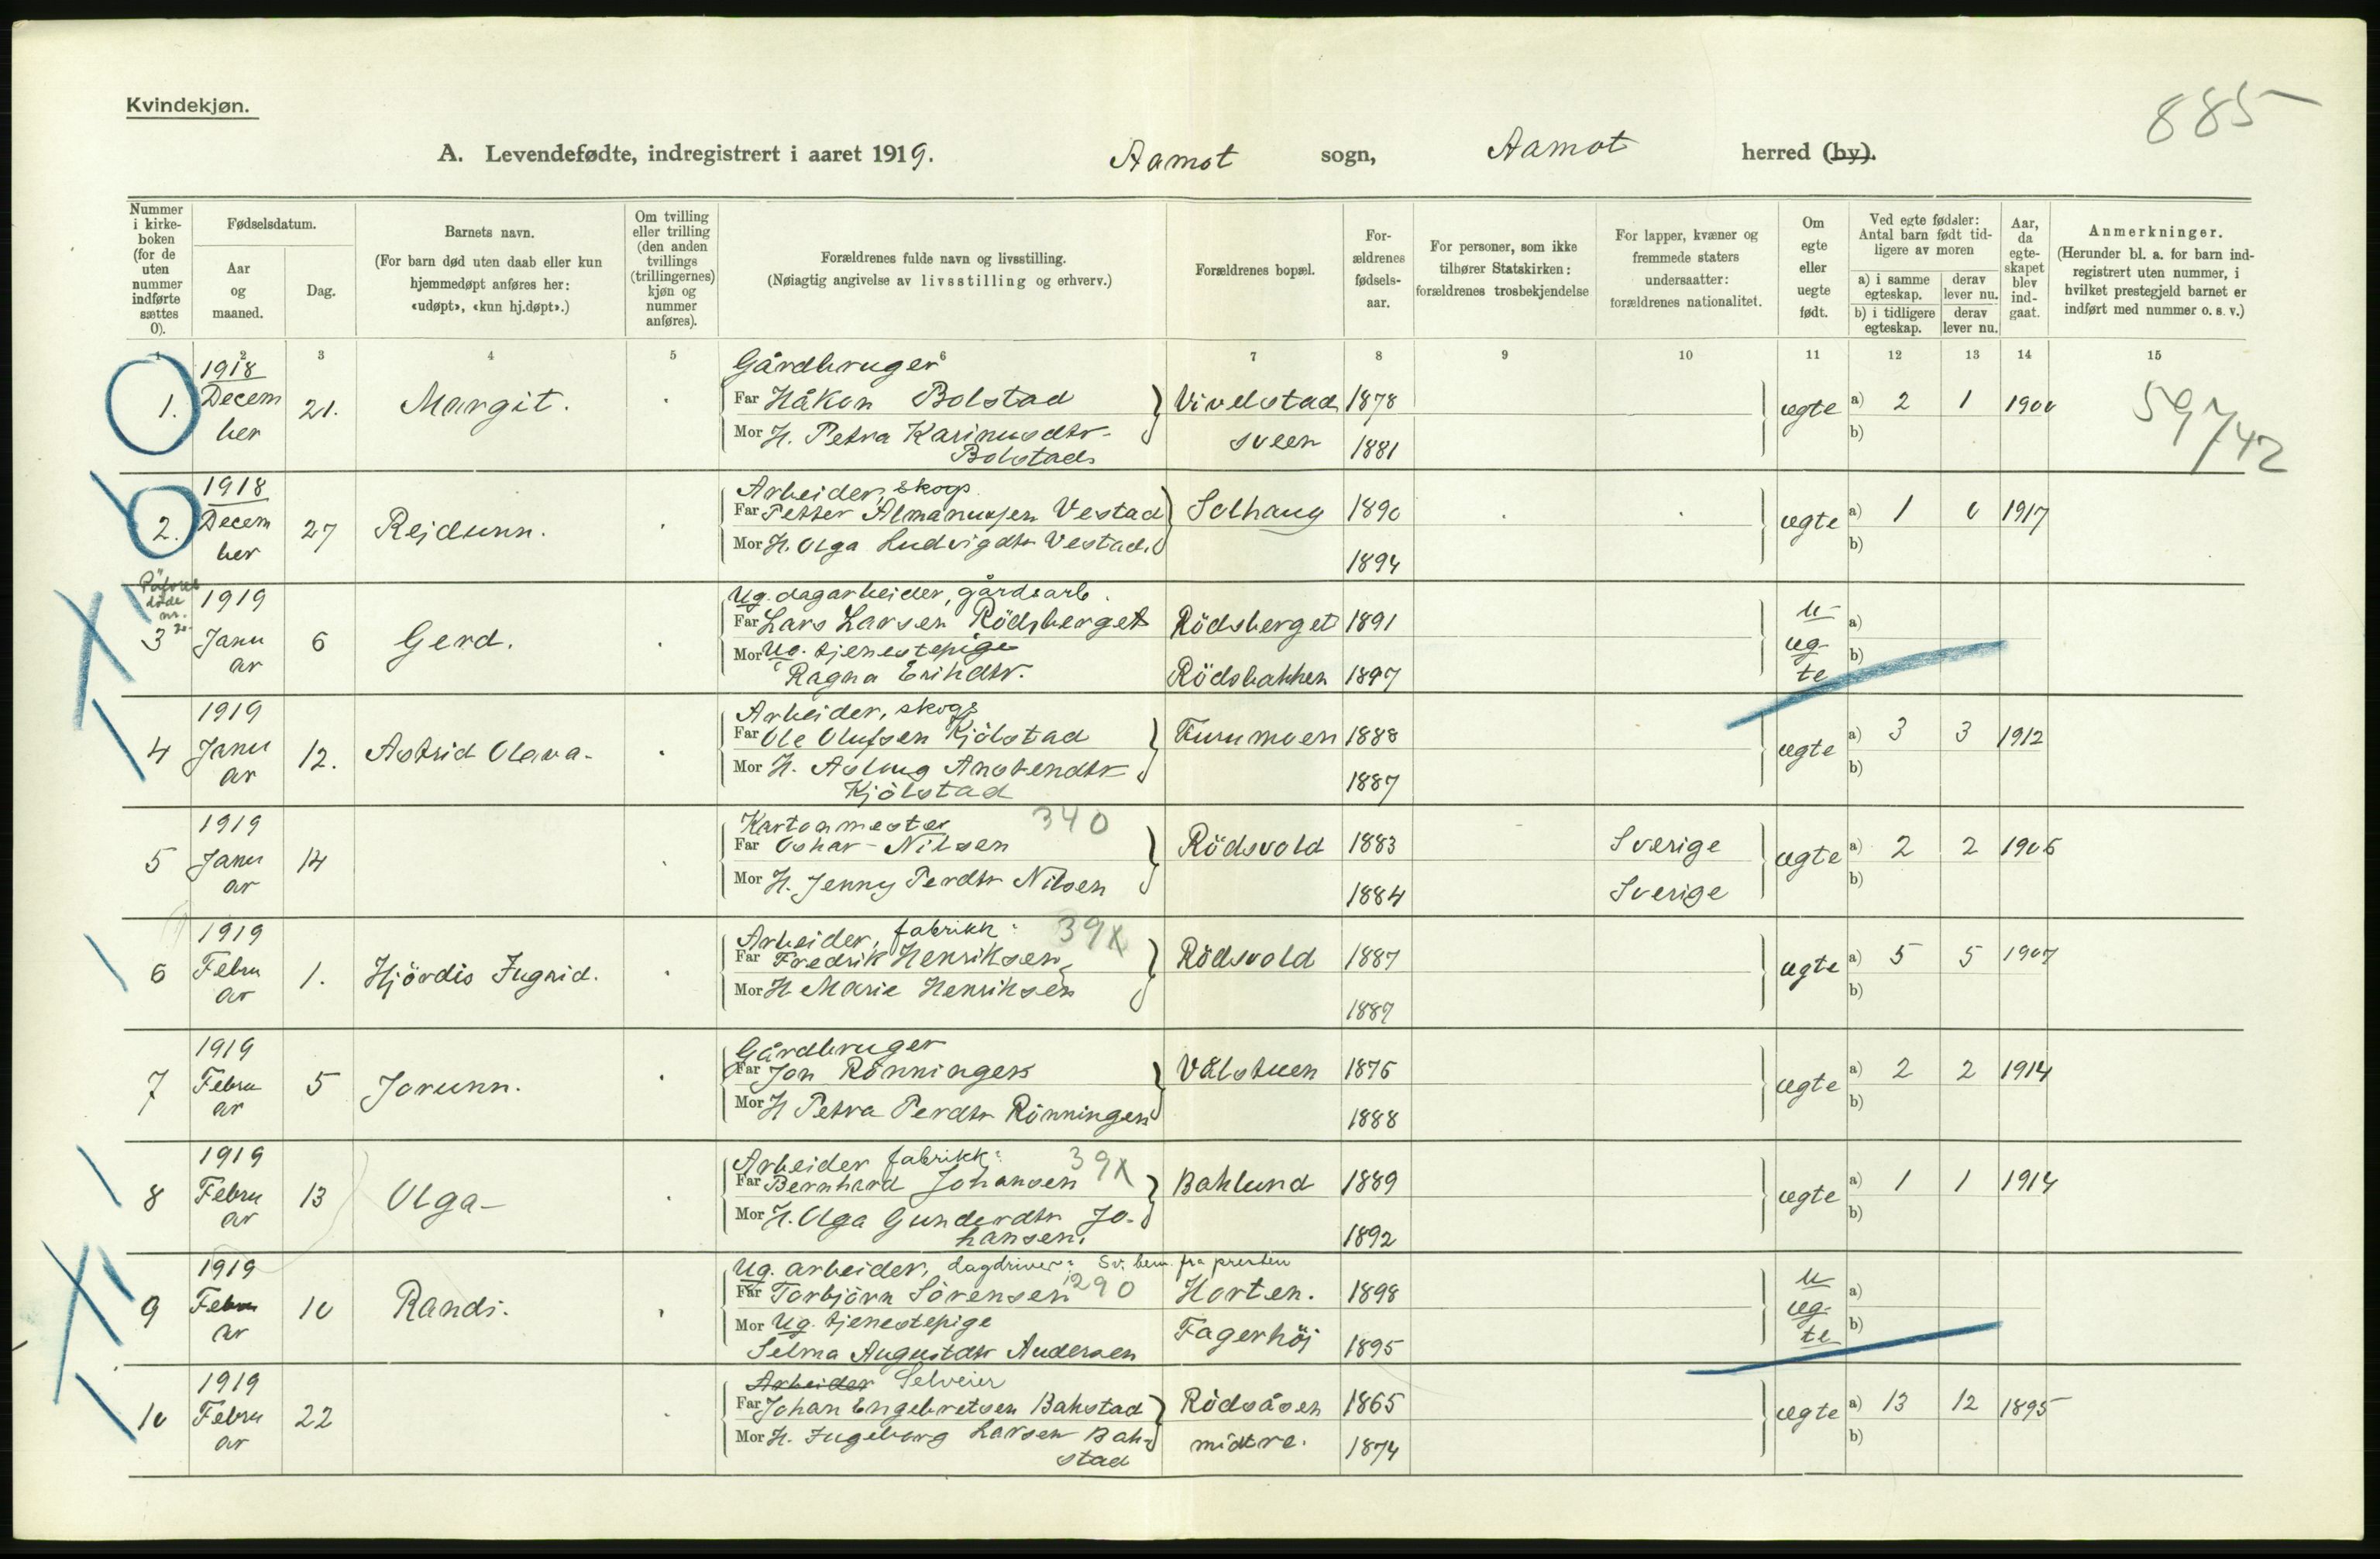 Kvindekjøn.
885
A. Levendefødte, indregistrert i aaret 1919. Aamot sogn, Aamot herred (by).
Nummer i kirkeboken (for de uten nummer indførte sættes 0).
Fødselsdatum.
Aar og maaned.
Dag.
Barnets navn.
(For barn død uten daab eller kun hjemmedøpt anføres her: «udøpt», «kun hj.døpt».)
Om tvilling eller trilling (den anden tvillings (trillingernes) kjøn og nummer anføres).
Forældrenes fulde navn og livsstilling.
(Nøiagtig angivelse av livsstilling og erhverv.)
Forældrenes bopæl.
For-
ældrenes
fødsels-
aar.
For personer, som ikke
tilhører Statskirken:
forældrenes trosbekjendelse
For lapper, kvæner og
fremmede staters
undersaatter:
forældrenes nationalitet.
Om
egte
eller
uegte
født.
Ved egte fødsler:
Antal barn født tid-
ligere av moren
a) i samme egteskap.
derav lever nu.
b) i tidligere egteskap.
derav lever nu.
Aar, da egte-skapet blev ind-gaat.
Anmerkninger.
(Herunder bl. a. for barn ind-
registrert uten nummer, i
hvilket prestegjeld barnet er
indført med nummer o. s. v.)
1 2 3 4 5 6 7 8 9 10 11 12 13 14 15
1918 Gårdbruger
1. Decem 21. Margit. Far Håkon Bolstad Vivelstad 1878 ægte a) 2 1 1900 597/42
ber Mor H. Petra Karinusdtr. sveen 1881 b)
Bolstad
1918 Arbeider, skogs
2. Decem 27 Reidunn. Far Petter Almanusen Vestad Solhaug 1890 ægte a) 1 0 1917
ber Mor H. Olga Ludvigdtr Vestad. 1894 b)
døde
nr.
1919 Ug. dagarbeider, gårdsarb.
3 Janu 6 Gerd. Far Lars Larsen Rödsberget Rödsberget 1891 u- a)
ar Mor Ug. tjenestepige æg- b)
Ragna Erikdtr. Rödsbakken 1897 te
1919 Arbeider, skogs
4 Janu 12. Astrid Olava. Far Ole Olufsen Kjölstad Furumoen 1888 ægte a) 3 3 1912
ar Mor H. Aslaug Anstendtr 1887 b)
Kjölstad
1919 Kartonmester 340
5 Janu 14 Far Oskar Nilsen Rödsvold 1883 Sverige ægte a) 2 2 1906
ar Mor H. Jenny Perdtr Nilsen 1884 Sverige b)
1919 Arbeider, fabrikk: 39X
6 Febru 1. Hjördis Ingrid. Far Fredrik Henriksen Rödsvold 1887 ægte a) 5 5 1907
ar Mor H. Marie Henriksen 1887 b)
1919 Gårdbruger
7 Febru 5 Jorunn. Far Jon Rönningen Vålstuen 1876 ægte a) 2 2 1914
ar Mor H Petra Perdtr Rönningen 1888 b)
1919 Arbeider fabrikk: 39X
8 Febru 13 Olga- Far Bernhard Johansen Baklund 1889 ægte a) 1 1 1914
ar Mor H. Olga Gunderdtr Jo- 1892 b)
hansen.
1919 Ug. arbeider, dagdriver: Sv. bem. fra presten
9 Febru 10 Randi. Far Torbjörn Sörensen 290 Horten. 1898 u a)
ar Mor Ug. tjenestepige Fagerhöi æg- b)
Selma Augustdtr Andersen 1895 te
1919 Arbeider Selveier
10 Febru 22 Far Johan Engebretsen Bakstad Rödsåsen 1865 ægte a) 13 12 1895
ar Mor H. Ingeborg Larsen Bak- midtre. 1874 b)
stad